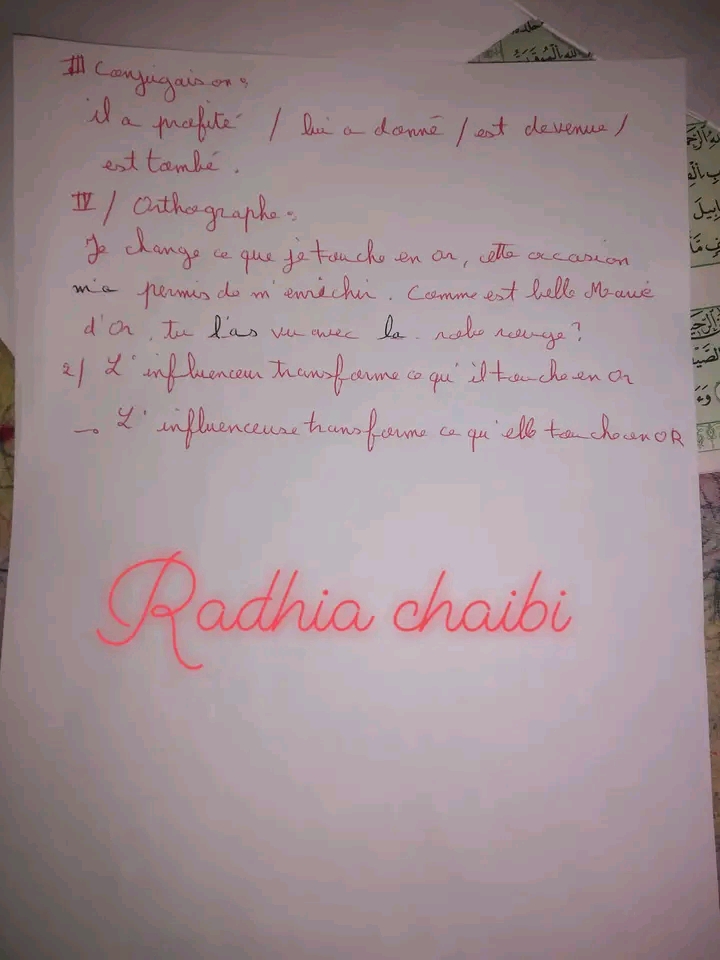 III Conjugaison :
il a profité / lui a donné / est devenue /
est tombé .
IV / Orthographe :
Je change ce que je touche en or, cette occasion
m'a permis de m'enrichir . Comme est belle
d'or , tu l'as vu avec la robe rouge ?
2/ L'influenceur transforme ce qu'il touche en or
→ L'influenceuse transforme ce qu'elle touche en OR
Radhia chaibi